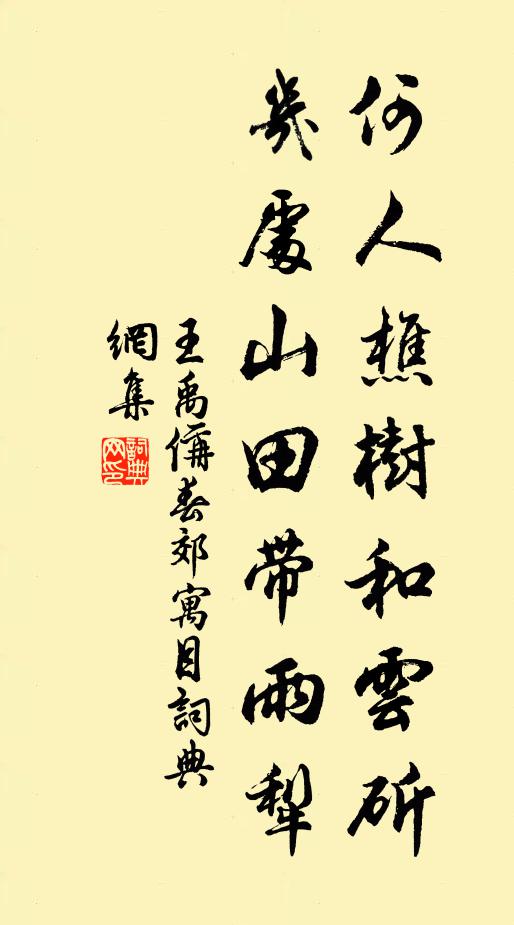 何人樵樹和雲斫
幾處山田帶雨犁
王禹偁春郊寓目詞典
網集
詞典網印